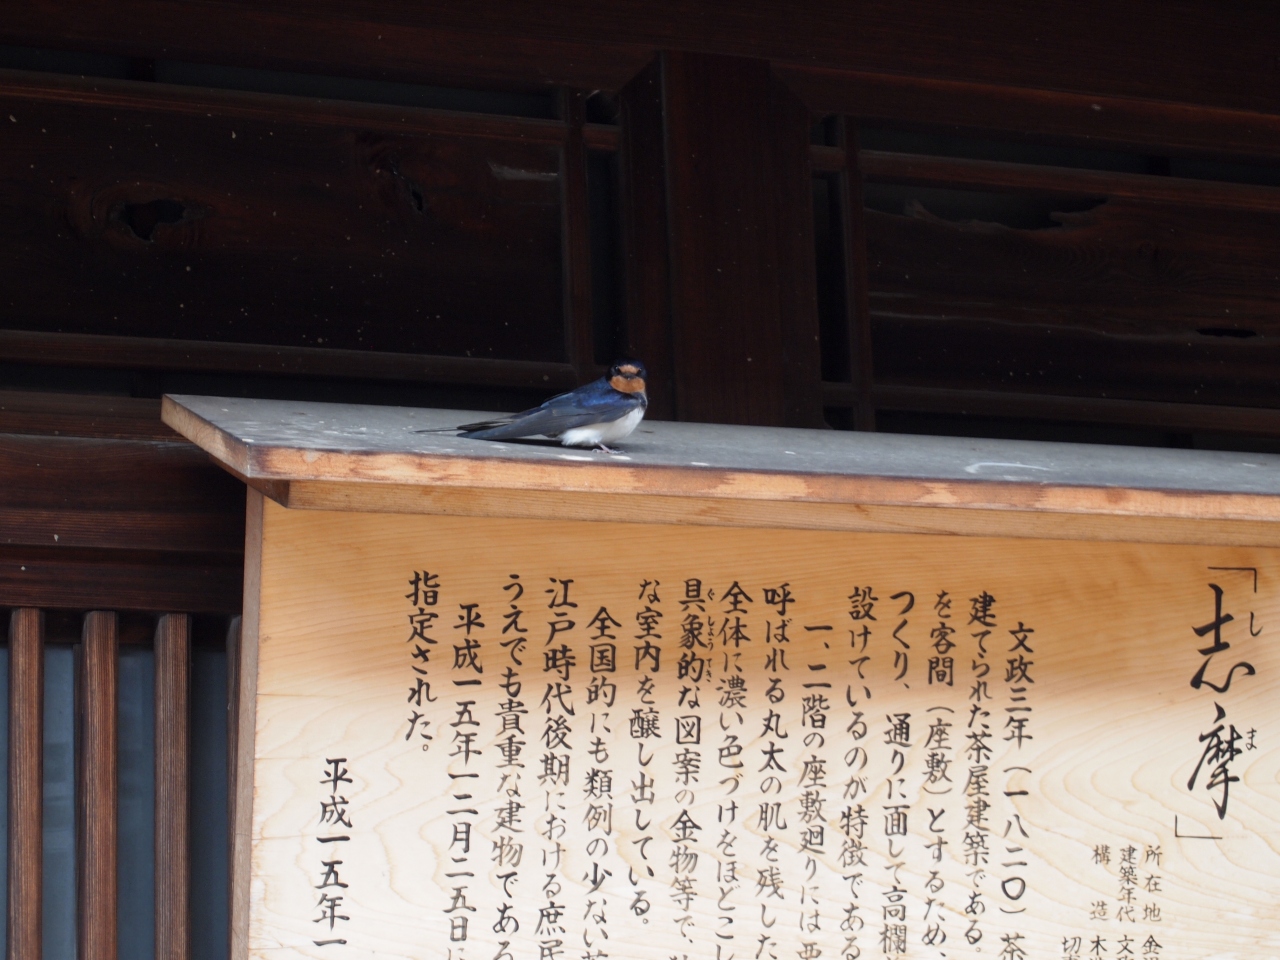 「志摩」
しま
所在地 金
建築年代 文
構造 木
切
文政三年(一八二〇)茶
建てられた茶屋建築である。
を客間(座敷)とするため、
つくり、通りに面して高欄
設けているのが特徴である
一、二階の座敷廻りには
呼ばれる丸太の肌を残した
全体に濃い色づけをほどこし
具象的な図案の金物等で、
ぐしょうてき
な室内を醸し出している。
全国的にも類例の少ない
江戸時代後期における庶民
うえでも貴重な建物である
平成一五年一二月二五日に
指定された。
平成一五年一